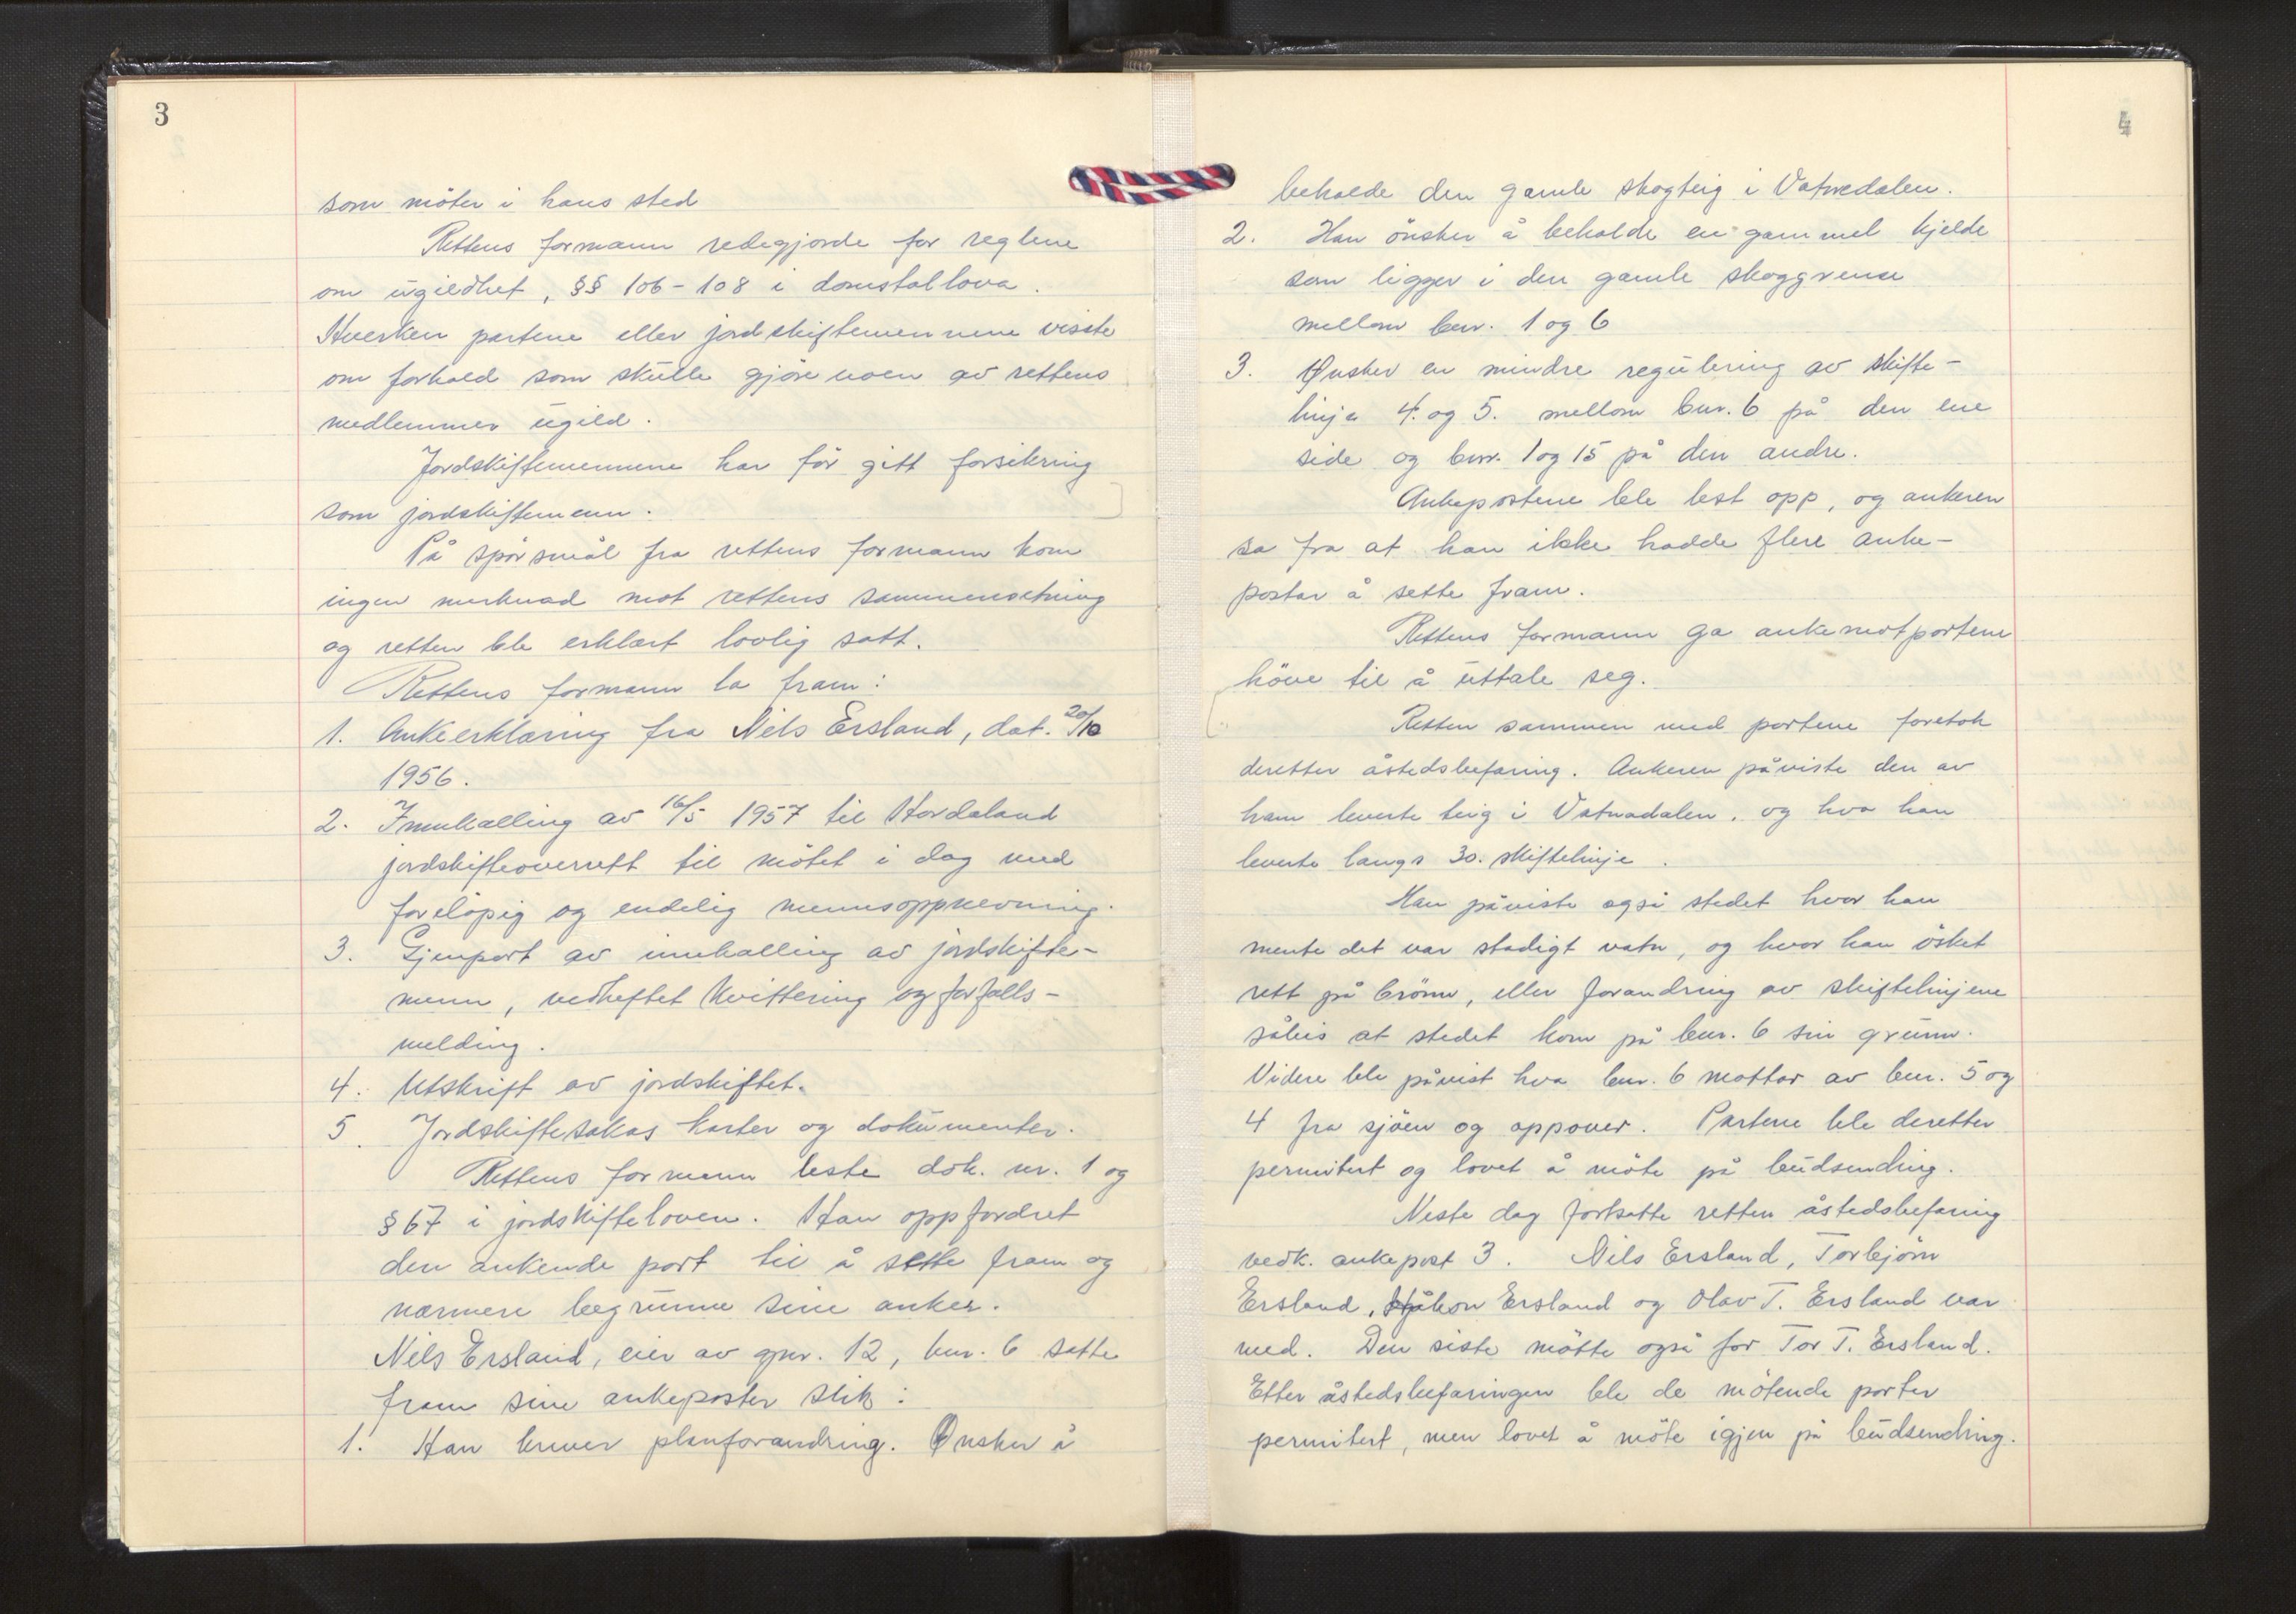 3
som möter i hans sted
Rettens formann redegjorde for reglene
om ugildhet, §§ 106-108 i domstollova.
Hverken partene eller jordskiftemennene visste
om forhold som skulle gjöre noen av rettens
medlemmer ugild.
Jordskiftemennene har för gitt forsikring
som jordskiftemenn.
På spörsmål fra rettens formann kom
ingen merknad mot rettens sammensetning
og retten ble erklært lovlig satt.
Rettens formann la fram:
1. Ankeerklæring fra Nils Ersland, dat. 20/10
1956.
2. Innkalling av 16/5 1957 til Hordaland
jordskifteoverrett til mötet i dag med
forelöpig og endelig mennsoppnevning.
3. Gjenpart av innkalling av jordskifte-
menn, vedheftet kvittering og forfalls-
melding.
4. Utskrift av jordskiftet.
5. Jordskiftesakas karter og dokumenter.
Rettens formann leste dok. nr. 1 og
§ 67 i jordskifteloven. Han oppfordret
den ankende part til å sette fram og
nærmere begrunne sine anker.
Nils Ersland, eier av gnr. 12, bnr. 6 satte
fram sine ankeposter slik:
1. Han krever planforandring. Ønsker å
4
beholde den gamle skogteig i Vatnedalen.
2. Han önsker å beholde en gammel kjelde
som ligger i den gamle skoggrense
mellom bnr. 1 og 6
3. Ønsker en mindre regulering av skifte-
linja 4. og 5. mellom bnr. 6 på den ene
side og bnr. 1 og 15 på den andre.
Ankepostene ble lest opp, og ankeren
sa fra at han ikke hadde flere anke-
postar å sette fram.
Rettens formann ga ankemotpartene
höve til å uttale seg.
Retten sammen med partene foretok
deretter åstedsbefaring. Ankeren påviste den av
ham leverte teig i Vatnadalen, og hva han
leverte langs 30. skiftelinje.
Han påviste også stedet hvor han
mente det var stadigt vatn, og hvor han ösket
rett på brönn, eller forandring av skiftelinjene
såleis at stedet kom på bnr. 6 sin grunn.
Videre ble påvist hva bnr. 6 mottar av bnr. 5 og
4 fra sjöen og oppover. Partene ble deretter
permitert og lovet å möte på budsending.
Neste dag fortsatte retten åstedsbefaring
vedk. ankepost 3. Nils Ersland, Torbjörn
Ersland, Håkon Ersland og Olav T. Ersland var
med. Den siste mötte også for Tor T. Ersland.
Etter åstedsbefaringen ble de mötende parter
permitert, men lovet å möte igjen på budsending.